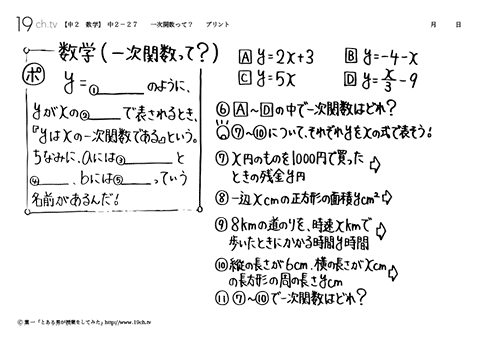 19ch.tv 【中2 数学】 中2-27 一次関数って? プリント 月 日
数学(一次関数って?)
ポ y=①______のように、
yがxの②____で表されるとき、
『yはxの一次関数である』という。
ちなみに、aには③______と
④____、bには⑤____っていう
名前があるんだ!
A y=2x+3 B y=-4-x
C y=5x D y=x/3-9
⑥ A~Dの中で一次関数はどれ?
⑦~⑩について、それぞれyをxの式で表そう!
⑦ x円のものを1000円で買った
ときの残金y円 ⇨
⑧ 一辺xcmの正方形の面積ycm² ⇨
⑨ 8kmの道のりを、時速xkmで
歩いたときにかかる時間y時間 ⇨
⑩ 縦の長さが6cm、横の長さがxcm
の長方形の周の長さycm ⇨
⑪ ⑦~⑩で一次関数はどれ?
© 葉一「とある男が授業をしてみた」http://www.19ch.tv